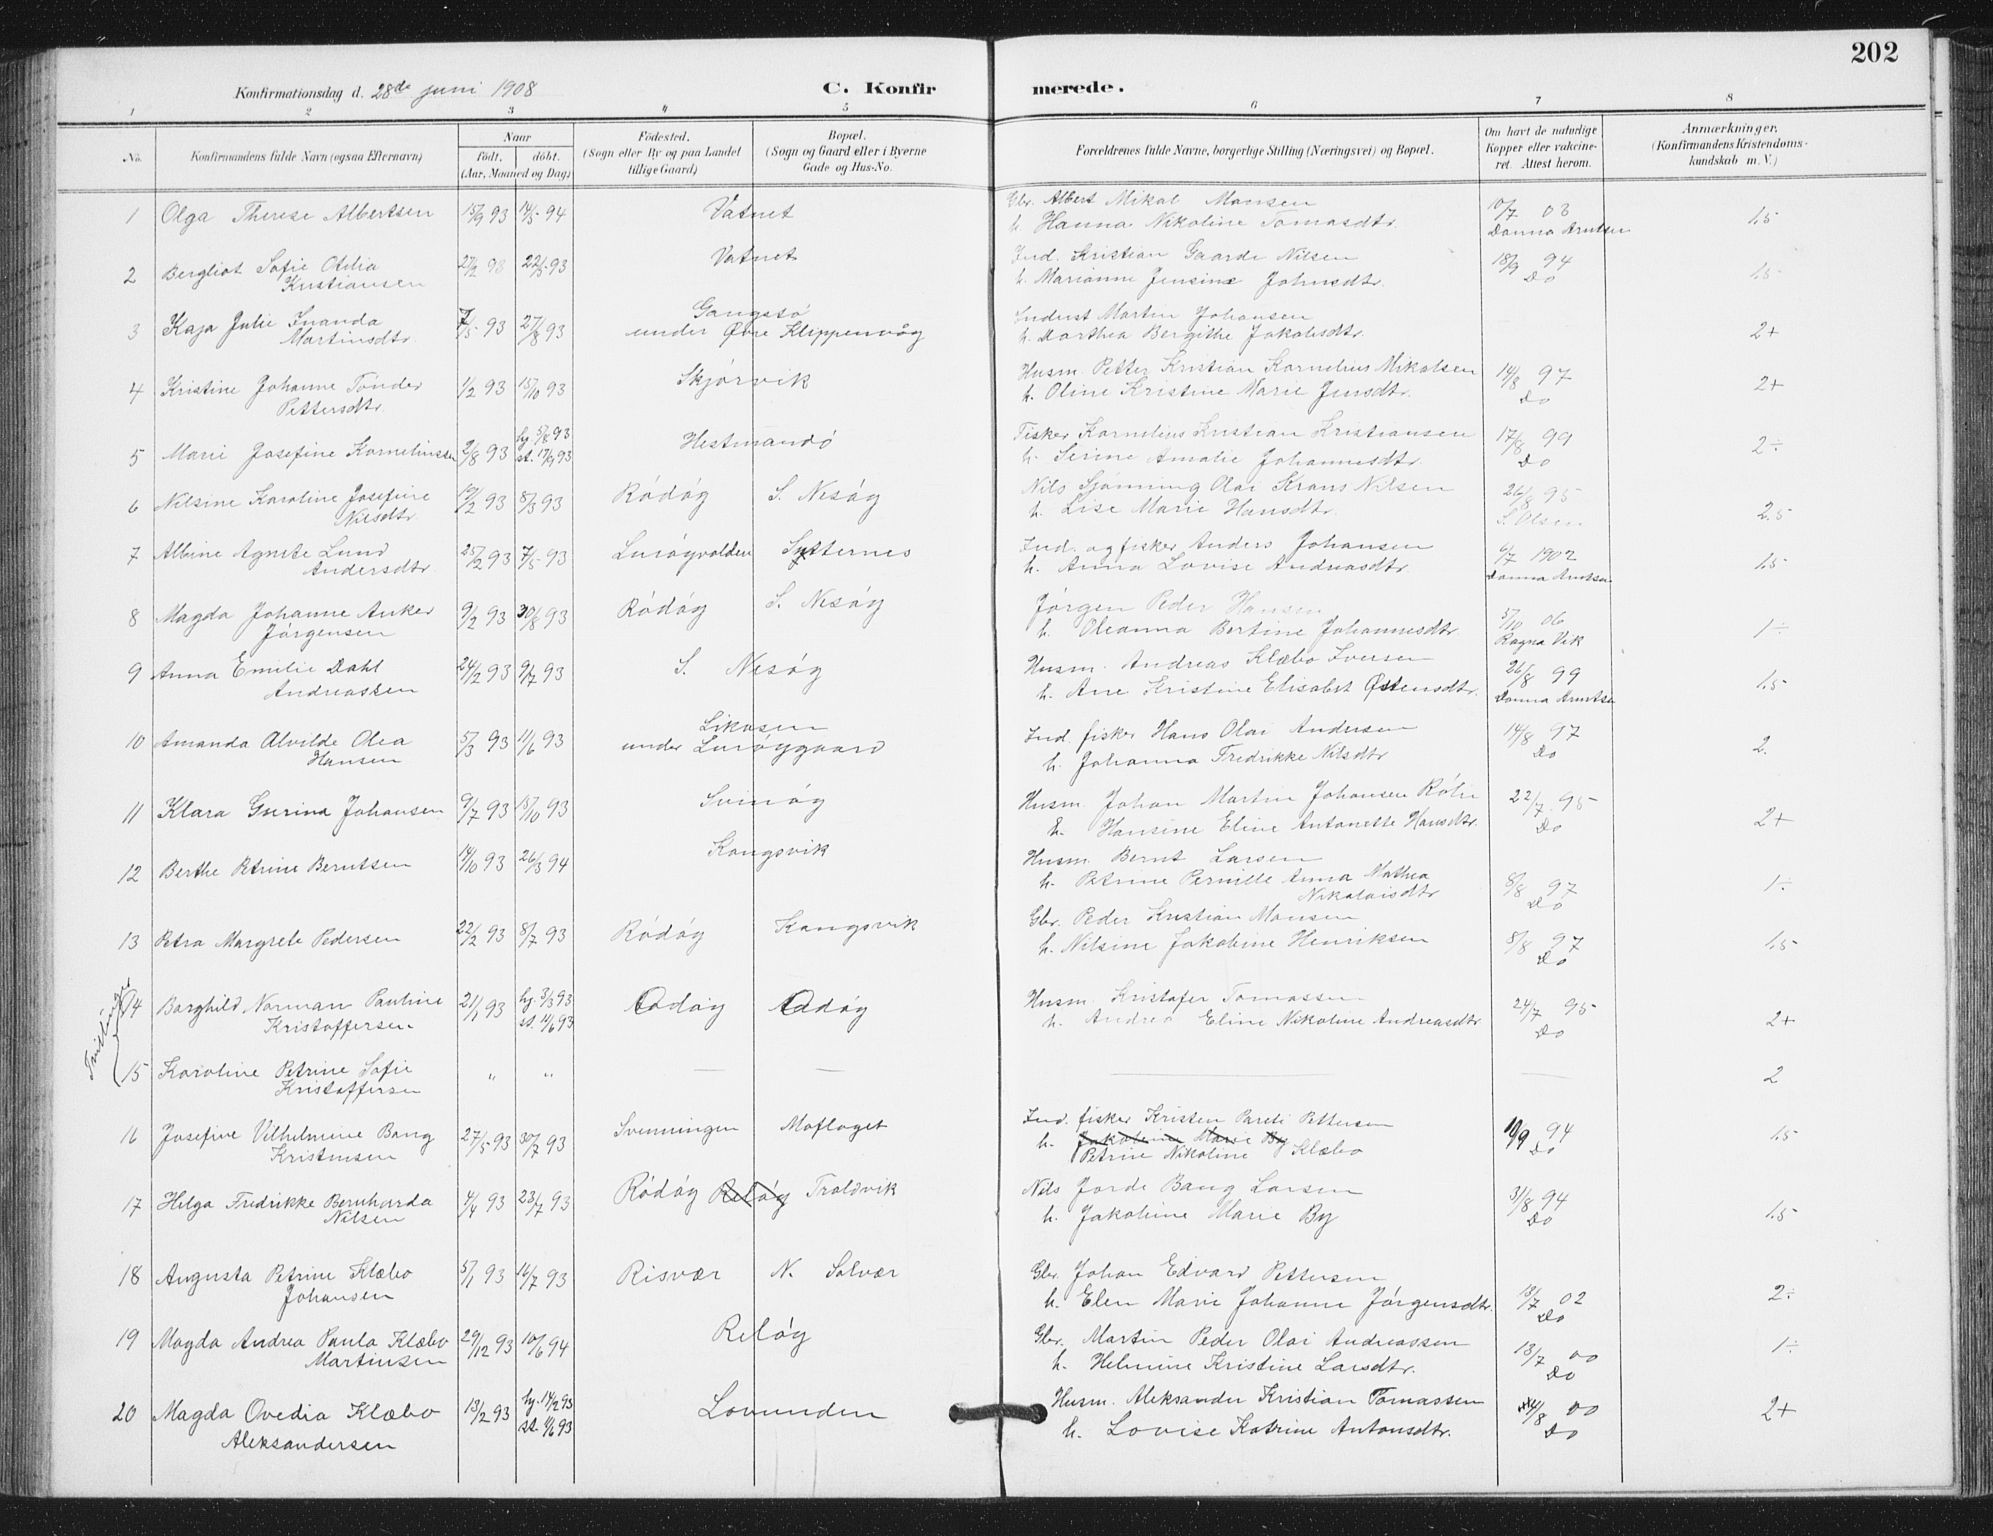 202
Konfirmationsdag d. 28de juni 1908 C. Konfirmerede.
1 2 3 4 5 6 7 8
No. Konfirmandens fulde Navn (ogsaa Efternavn) Naar födt. döbt. (Aar, Maaned og Dag) Födested. (Sogn eller By og paa Landet tillige Gaard) Bopæl. (Sogn og Gaard eller i Byerne Gade og Hus-No. Forældrenes fulde Navne, borgerlige Stilling (Næringsvei) og Bopæl. Om havt de naturlige Kopper eller vakcineret. Attest herom. Anmærkninger. (Konfirmandens Kristendomskundskab m. V.)
1 Olga Therese Albertsen 15/9 93 14/5 94 Vatnet Gbr. Albert Mikal Monsen 10/7 03 1.5
h. Hanna Nikoline Tomasdtr. Danna Arntsen
2 Bergliot Sofie Otilia 27/2 93 22/5 93 Vatnet Ind. Kristian Gaarde Nilsen 18/9 94 1.5
Kristiansen h. Marianne Jensine Johnsdtr. Do
3 Kaja Julie Inanda 7/5 93 27/8 93 Gangstø Inderst Martin Johansen 2+
Martinsdtr. under Øvre Klippenvåg h. Dorthea Bergithe Jakobsdtr.
4 Kristine Johanne Tønder 1/2 93 15/10 93 Skjørvik Husm. Petter Kristian Kornelius Mikalsen 14/8 97 2+
Pettersdtr. h. Oline Kristine Marie Jensdtr. Do
5 Marie Josefine Korneliussen 2/8 93 hj. 5/8 93 Hestmandø Fisker Kornelius Kristian Kristiansen 17/8 99 2÷
st. 17/9 93 h. Serine Amalie Johannesdtr. Do
6 Nilsine Karoline Josefine 19/2 93 8/3 93 Rødøy S. Nesøy Nils Sjønning Olai Krans Nilsen 26/8 95 2.5
Nilsdtr. h. Lise Marie Hansdtr. S. Olsen
7 Albine Agnete Lund 25/2 93 7/5 93 Lurøyvolden Sytternes Ind. og fisker Anders Johansen 6/7 1902 1.5
Andersdtr. h. Anna Lovise Andreasdtr. Danna Arntsen
8 Magda Johanne Anker 9/2 93 30/8 93 Rødøy S. Nesøy Jørgen Peder Hansen 5/10 06 1÷
Jørgensen h. Oleanna Bertine Johannesdtr. Ragna Vik
9 Anna Emilie Dahl 24/2 93 9/7 93 S. Nesøy Husm. Andreas Klæbo Iversen 26/8 99 1.5
Andreassen h. Ane Kristine Elisabet Østensdtr. Danna Arntsen
10 Amanda Alvilde Olea 5/3 93 11/6 93 Likosen Ind. fisker Hans Olai Andersen 14/8 97 2.
Hansen under Lurøygaard h. Johanna Fredrikke Nilsdtr Do
11 Klara Gurina Johansen 9/7 93 15/10 93 Svinøy Husm. Johan Martin Johansen Rølie 22/7 95 2+
h. Hansine Eline Antonette Hansdtr. Do
12 Berthe Petrine Berntsen 14/10 93 26/3 94 Kongsvik Husm. Bernt Larsen 8/8 97 1÷
h. Petrine Pernille Anna Mathea Do
Nikolaisdtr
13 Petra Margrete Pedersen 22/2 93 8/7 93 Rødøy Kongsvik Gbr. Peder Kristian Monsen 8/8 97 1.5
h. Nilsine Jakobine Henriksen Do
14 Borghild Norman Pauline 21/1 93 hj. 3/3 93 Odøy Odøy Husm. Kristofer Tomassen 24/7 95 2+
Kristoffersen st. 11/6 93 h. Andrea Eline Nikoline Andreasdtr Do
15 Karoline Petrine Sofie " " — — — 2
Kristoffersen
16 Josefine Vilhelmine Bang 27/5 93 30/7 93 Svenningen Moflaget Ind. fisker Kristen Pareli Pettersen 10/9 94 1.5
Kristensen h. Jakobine Marie By Do
Petrine Nikoline Klæbo
17 Helga Fredrikke Bernharda 4/4 93 23/7 93 Rødøy Reløy Troldvik Nils Jorde Bang Larsen 31/8 94 1.5
Nilsen h. Jakobine Marie By Do
18 Augusta Petrine Klæbo 5/1 93 16/7 93 Risvær N. Solvær Gbr. Johan Edvard Pettersen 13/7 02 2÷
Johansen h. Elen Marie Johanne Jørgensdtr. Do
19 Magda Andrea Paula Klæbo 29/12 93 10/6 94 Reløy Gbr. Martin Peder Olai Andreassen 13/7 00 1÷
Martinsen h. Helmine Kristine Larsdtr. Do
20 Magda Ovedia Klæbo 13/2 93 hj. 14/2 93 Lovunden Husm. Aleksander Kristian Tomassen 14/8 00 2+
Aleksandersen st. 11/6 93 h. Lovise Katrine Antonsdtr. Do